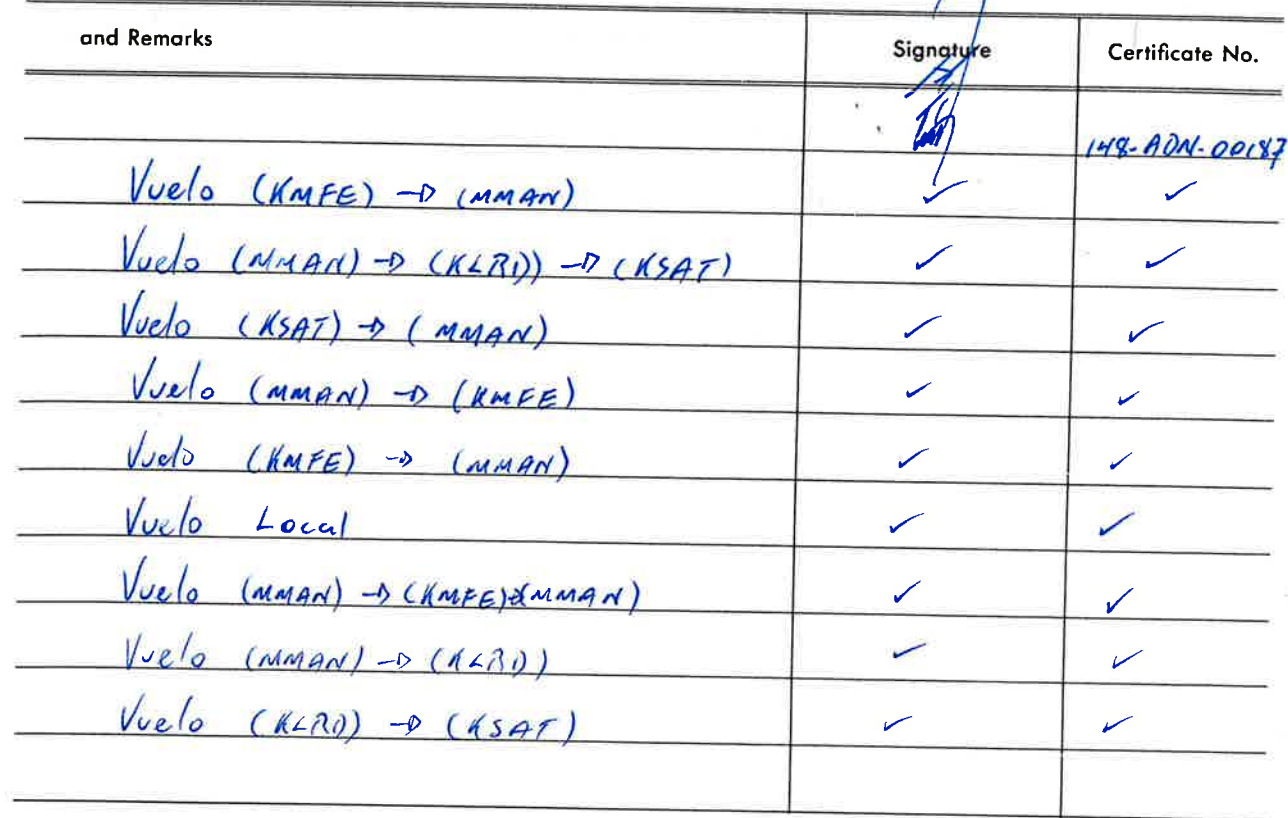 and Remarks Signature Certificate No.
148-ADN-00187
Vuelo (KMFE) → (MMAN) ✓ ✓
Vuelo (MMAN) → (KLRD) → (KSAT) ✓ ✓
Vuelo (KSAT) → (MMAN) ✓ ✓
Vuelo (MMAN) → (KMFE) ✓ ✓
Vuelo (KMFE) → (MMAN) ✓ ✓
Vuelo Local ✓ ✓
Vuelo (MMAN) → (KMFE) (MMAN) ✓ ✓
Vuelo (MMAN) → (KLRD) ✓ ✓
Vuelo (KLRD) → (KSAT) ✓ ✓